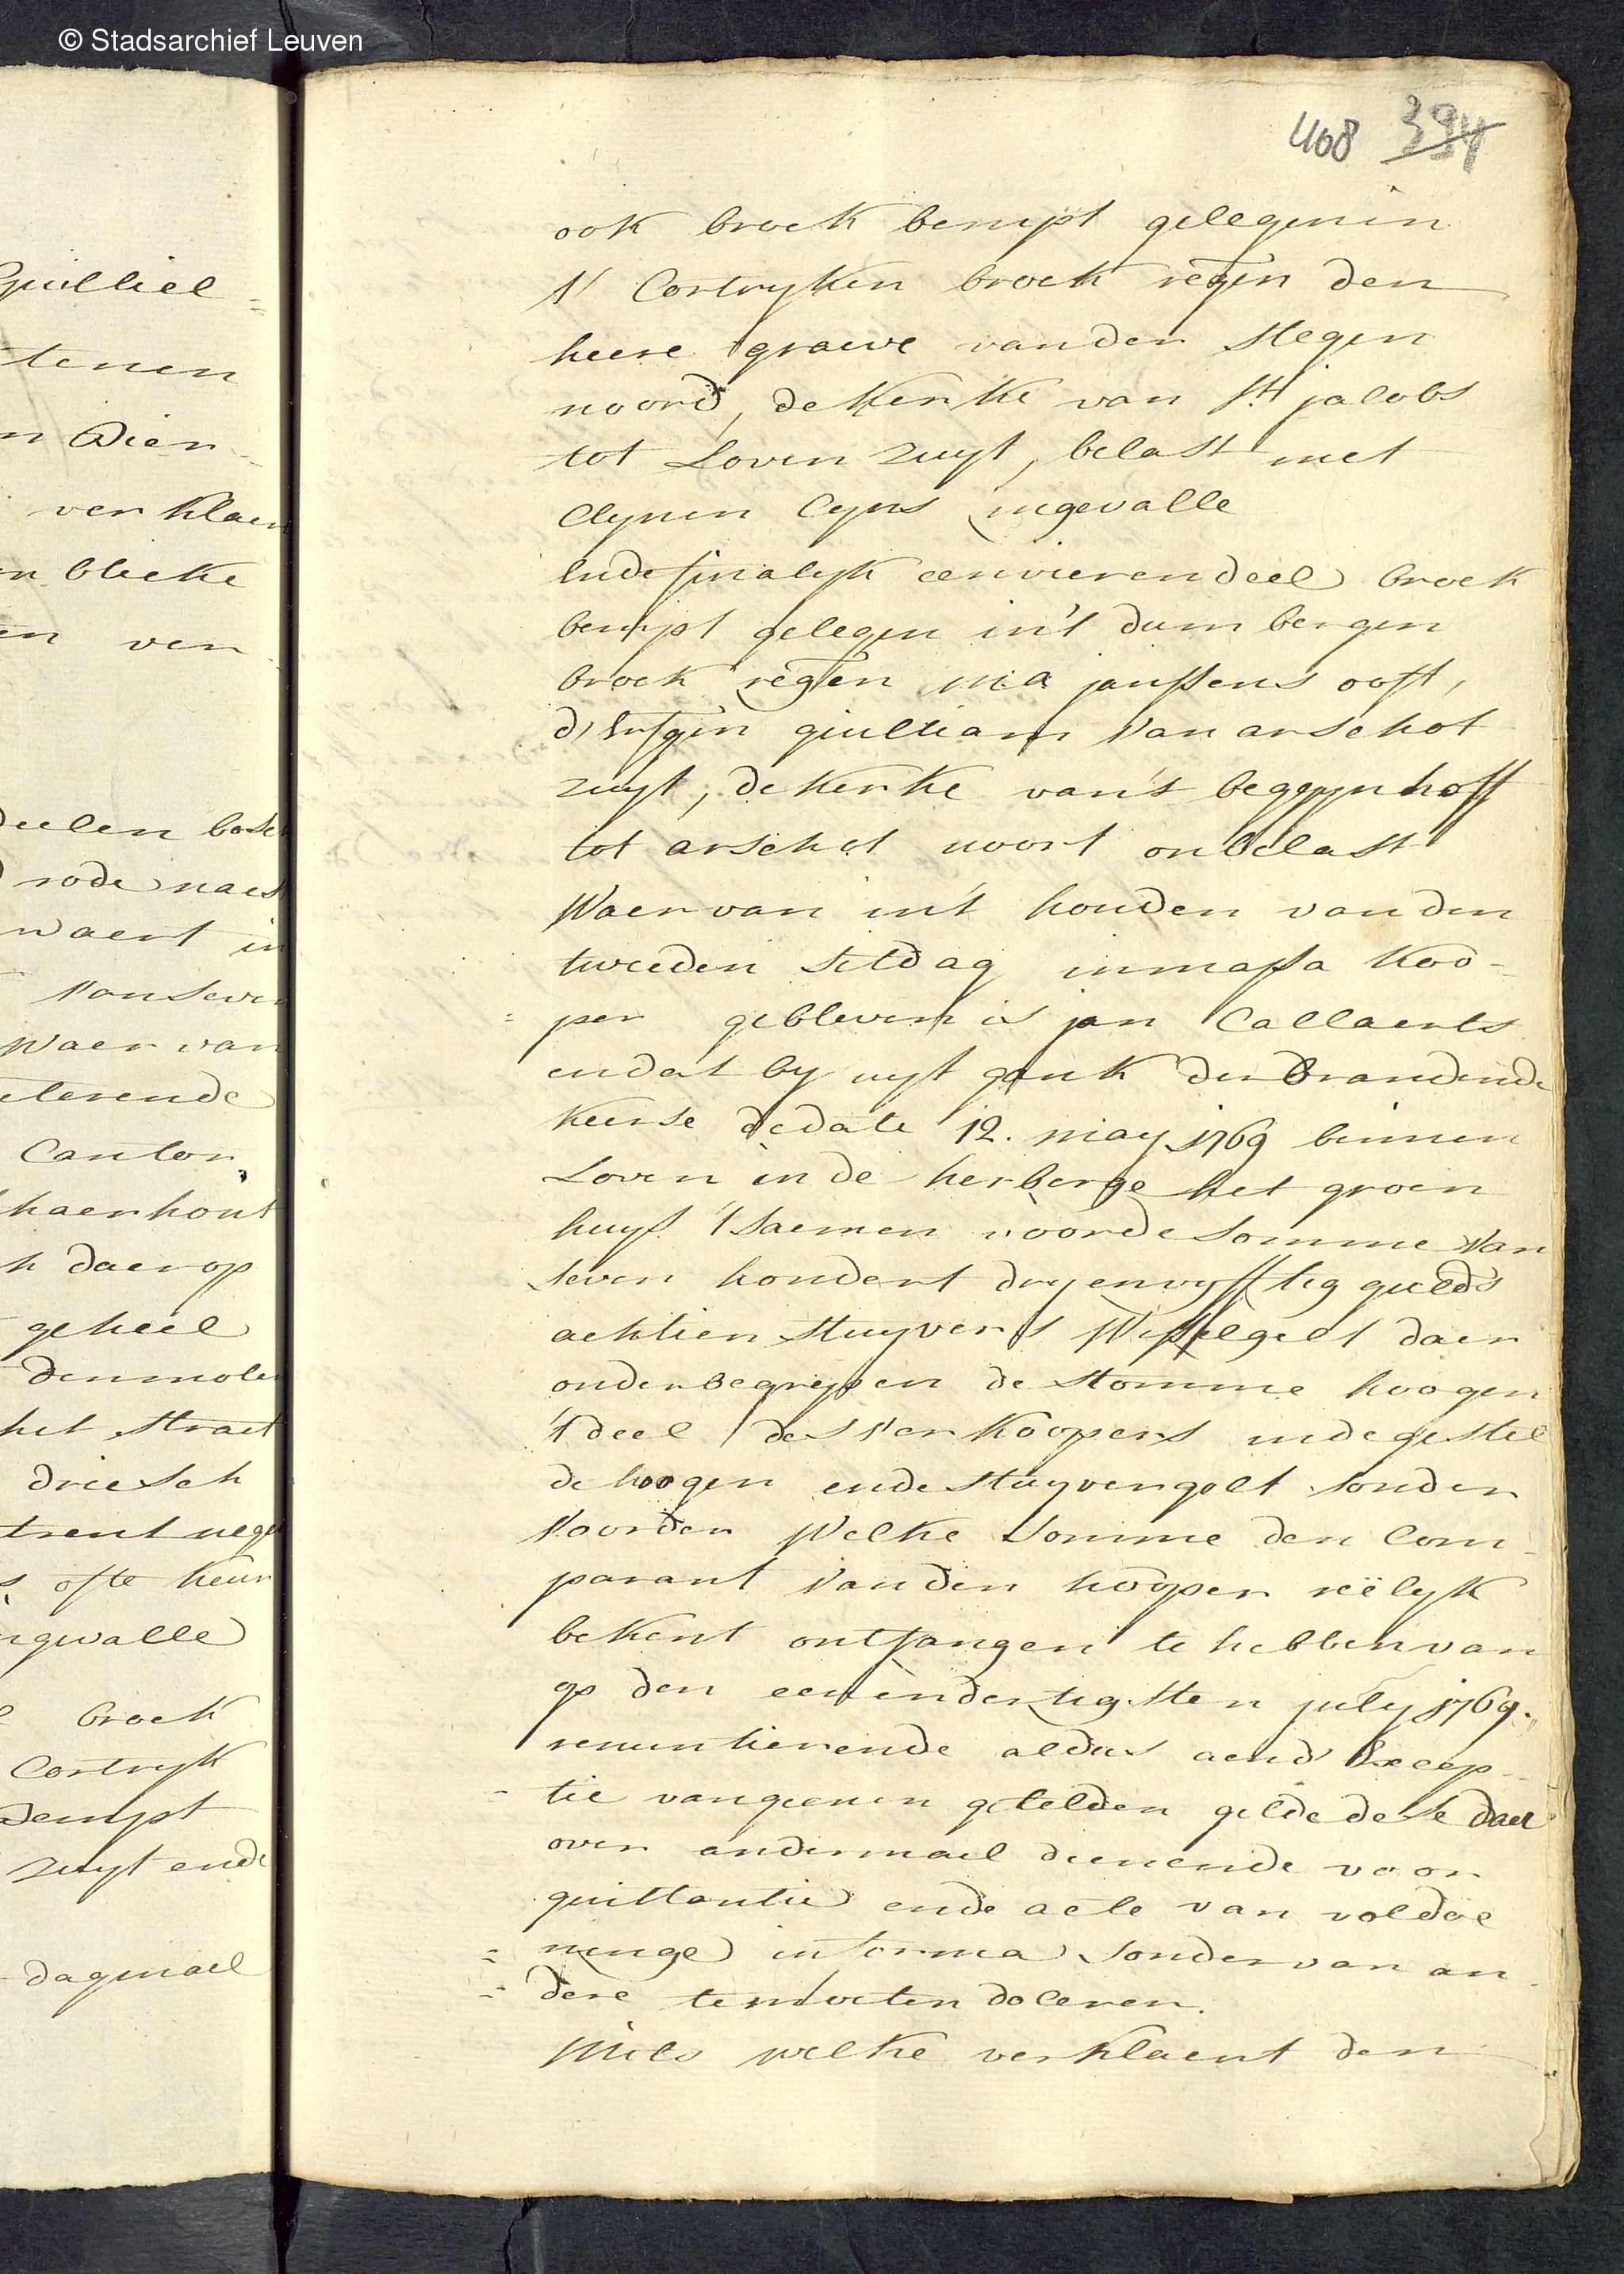 © Stadsarchief Leuven
408 394
ook broek bempt gelegen in
t' Cortryken broek regen den
heere graeve vander Stegen
noord, de kerke van St jacobs
tot Loven zuyt, belast met
Clynen Cyns ingevalle
Ende finalyk een vierendeel broek
bempt gelegen in't dumbergen
broek regen m a janssens oost,
d' Erfgen guilliam Van arschot
zuyt, de kerke van's beggynhoff
tot arschot noort onbelast
Waer van in't houden van den
tweeden sitdag in massa koo-
= per gebleven is jan Callaerts
en dat by uyt gank der brandende
keerse de date 12. may 1769 binnen
Loven in de herberge het groen
huys 't saemen voor de somme Van
seven hondert dry en vyfftig guld's
achtien stuyvers Wisselgelt daer
onder begrepen de stomme hoogen
't deel des verkoopers in de gestel
de hoogen ende stuyvergelt sonder
Voorder Welke somme den Com-
parant Van den kooper reëlyk
bekent ontfangen te hebben van
op den eenendertigsten july 1769.
renuntierende aldus aen d' Excep-
- tie van geenen getelden gelde dese daer
over andermael dienende voor
quittantie ende acte van voldoe
= ninge in forma sonder van an
= dere te moeten doceren.
Mits welke verklaert den
Guilliel=
tenen
n Dier-
verklaer
n blieke
en ver
deelen bosch
rode naest
waert in
Van seve
Waer van
elerende
Cantor
haerhout
h daer op
geheel
den mole
het straet
driesch
trent nege
s ofte keur
ngevalle
broek
Cortryk
bempt
zuyt ende
dagmael